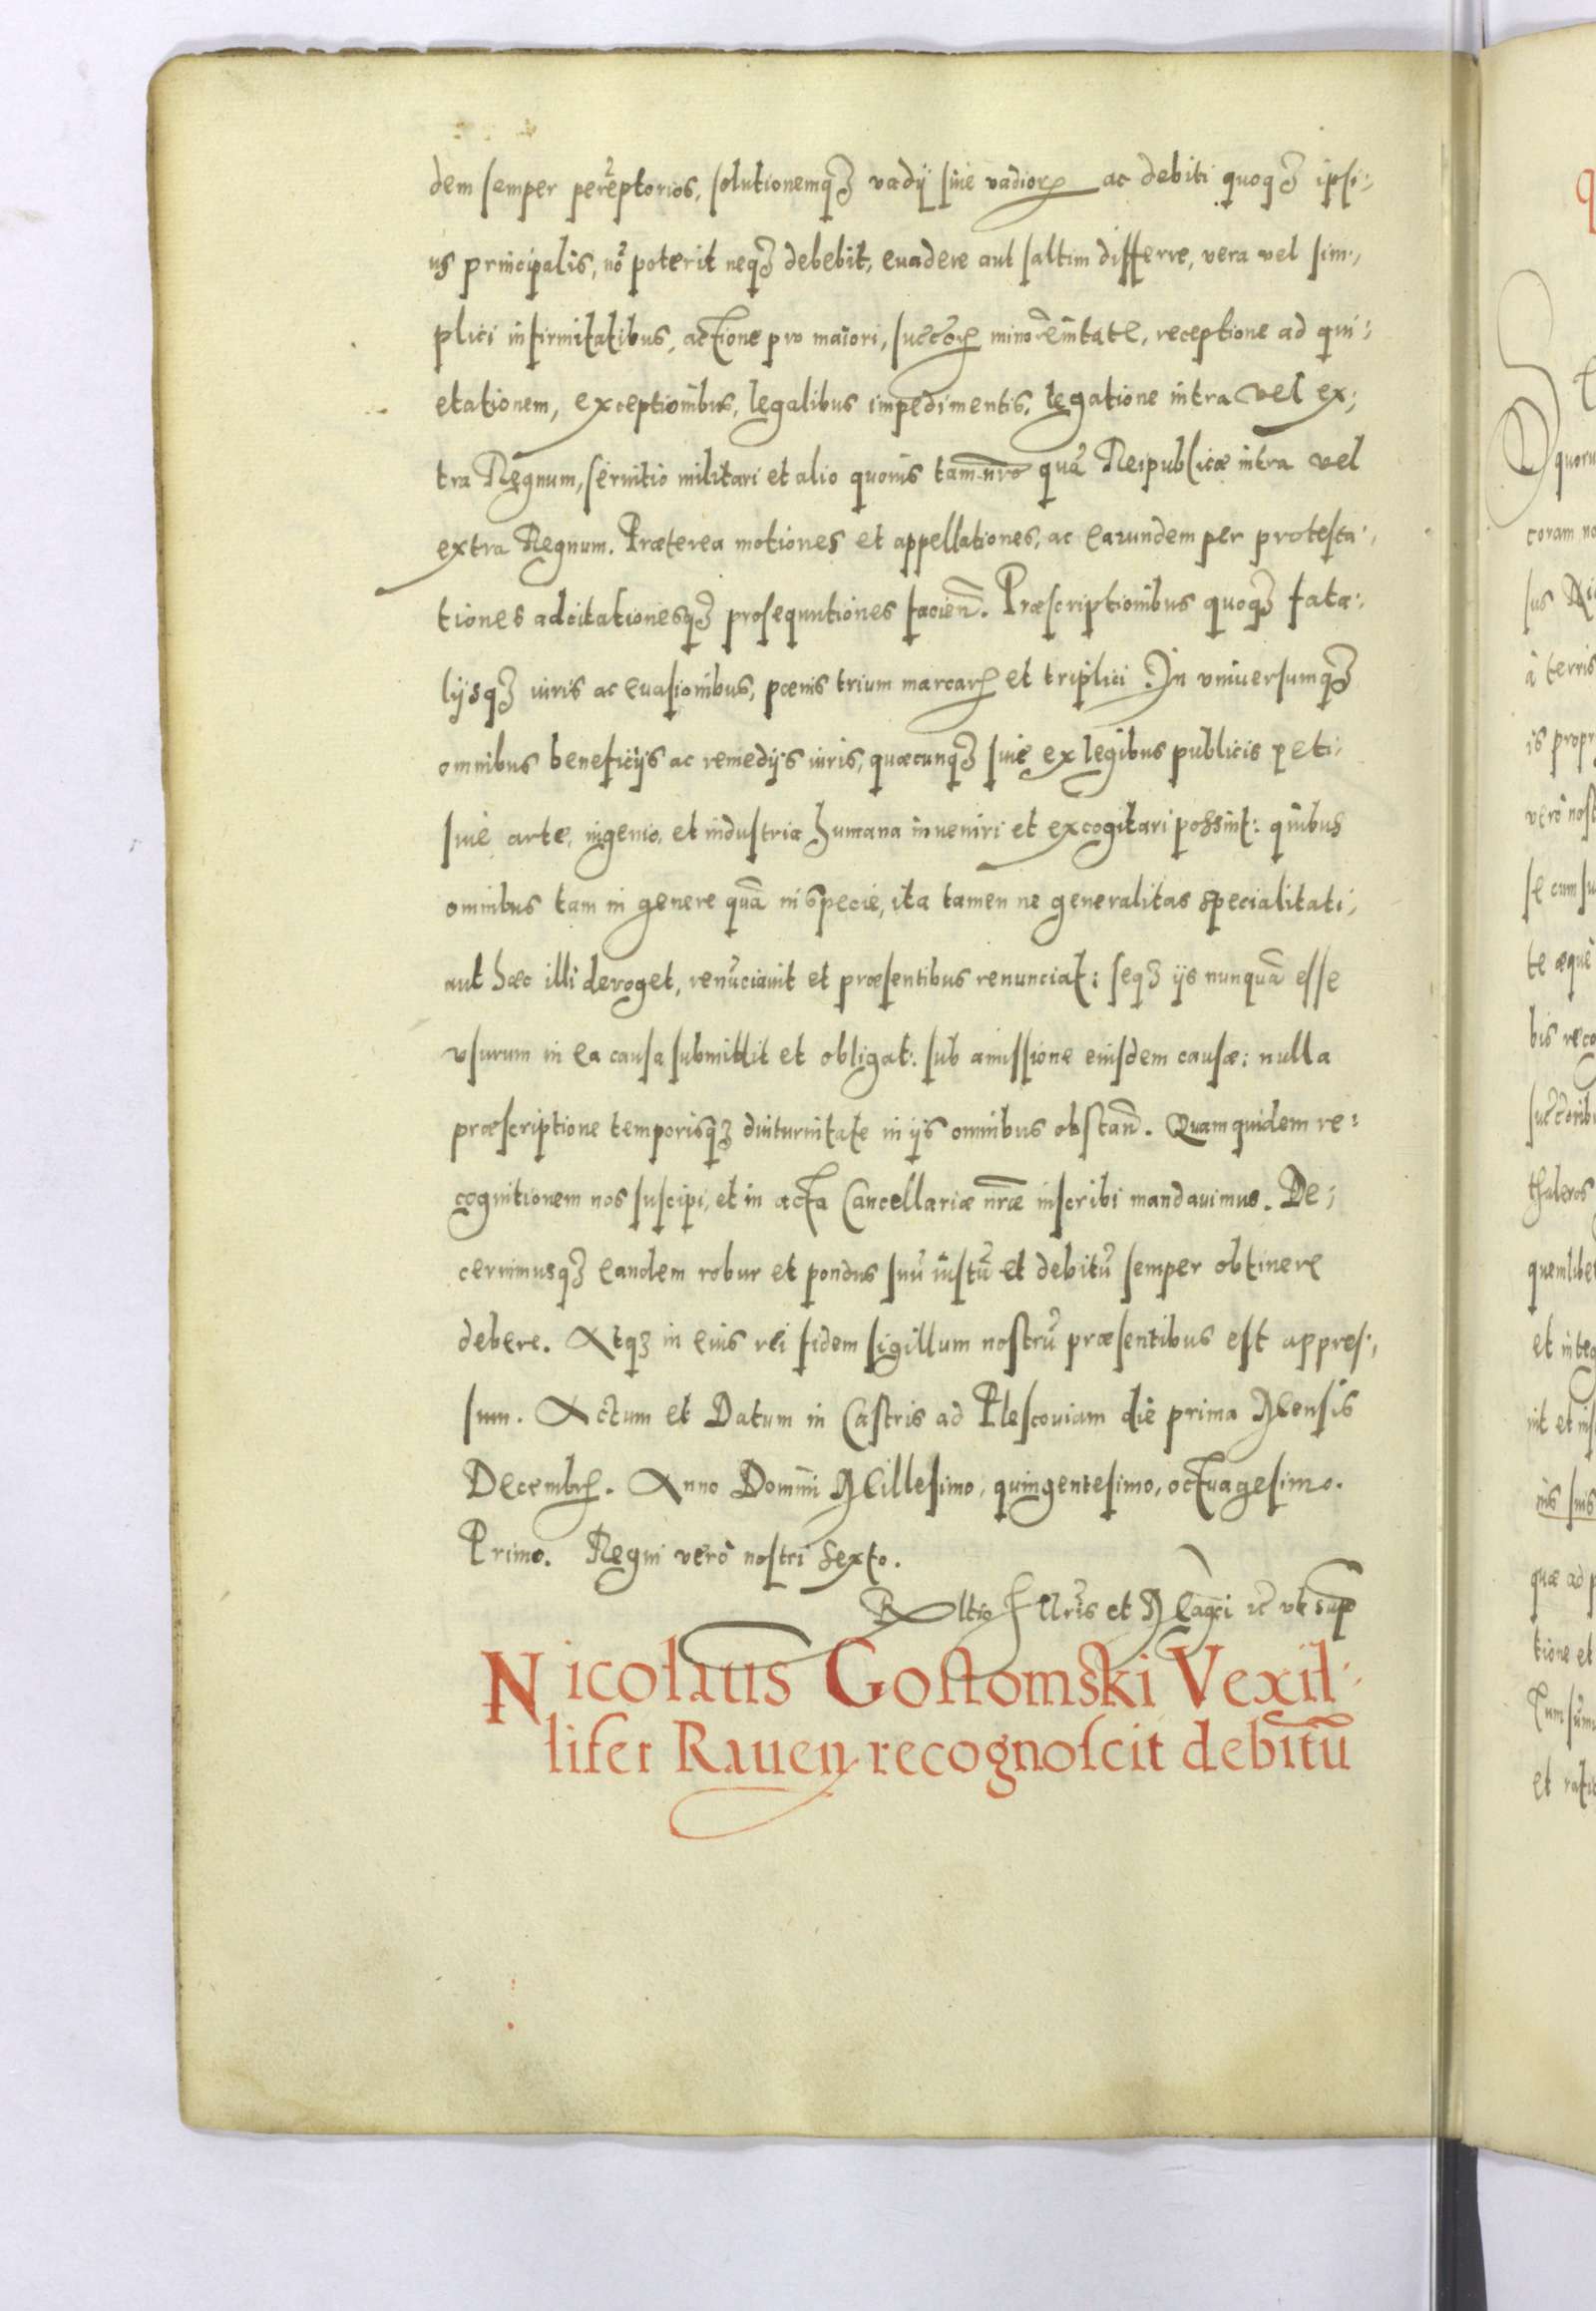 dem semper perẽptorios, solutionemqꝫ vadÿ siue vadioꝝ ac debiti quoqꝫ ipsi:,
us principalis, nõ poterit neqꝫ debebit, euadere aut saltim differre, vera vel sim:,
plici infirmitatibus, actione pro maiori, succ̃oꝝ minorẽnitate, receptione ad qui:,
etationem, exceptionibus, legalibus impedimentis, legatione intra vel ex:,
tra Regnum, seruitio militari et alio quouis tam nr̃o quã Reipublicæ intra vel
extra Regnum. Præterea motiones et appellationes, ac earundem per protesta:,
tiones adcitationesqꝫ prosequutiones facieñ. Præscriptionibus quoqꝫ fata:,
lÿsqꝫ iuris ac euasionibus, pœnis trium marcaꝝ et triplici. In vniuersumqꝫ
omnibus beneficÿs ac remedÿs iuris, quæcunqꝫ siue ex legibus publicis peti:,
siue arte, ingenio, et industria humana inueniri et excogitari possint: quibus
omnibus tam in genere quã in specie, ita tamen ne generalitas specialitati:,
aut hæc illi deroget, renũciauit et præsentibus renunciat: seqꝫ ÿs nunquã esse
vsurum in ea causa submittit et obligat: sub amissione eiusdem causæ: nulla
præscriptione temporisqꝫ diuturnitate in ÿs omnibus obstañ. Quam quidem re:
cognitionem nos suscipi, et in acta Cancellariæ nr̃æ inscribi mandauimus. De:,
cernimusqꝫ eandem robur et pondus suũ iustũ et debitũ semper obtinere
debere. Atqꝫ in eius rei fidem sigillum nostrũ præsentibus est appres:,
sum. Actum et Datum in Castris ad Plescouiam die prima Mensis
Decembꝝ. Anno Domini Millesimo, quingentesimo, octuagesimo.
Primo. Regni vero nostri sexto.
Rltio Illris et Magci ꝛc̃ vt sup
Nicolaus Gostomski Vexil:
lifer Rauen recognoscit debitũ